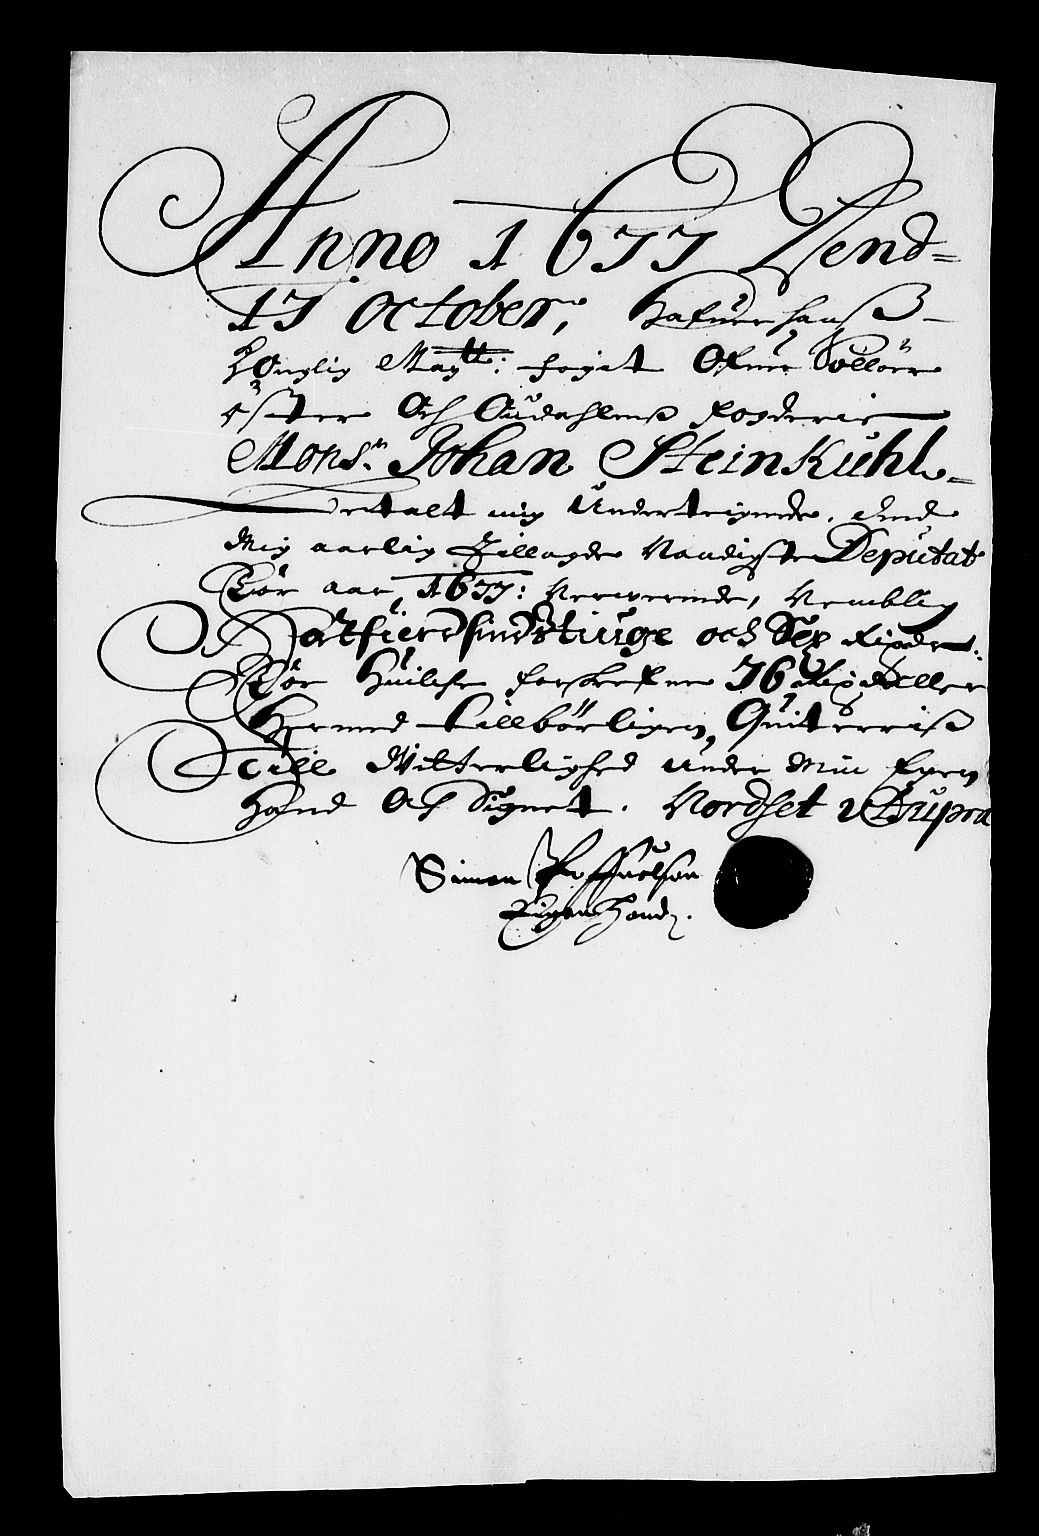 Anno 1677 Dend=
17 October, Hafuer hanß
Konglig Maytt: fogit Ofuer Solloer
Øster Och Oudahlens fogderie
Monsr. Johan Steinkuhl=
Betalt mig Undertegnede, dend
Mig aarlig Tillagde Naadigste Deputat
For aar 1677: Nerwerende, Nemblig
Halfierdsindstiuge och Sex Rixdr:
For huilche forskrefne 76 Rixdaller
Hermed tillbörligen Quiterris
Till Vitterlighed under Min Egen
Haand Och Signet. Nordset ut Supra
Simon
Eigen Handt.